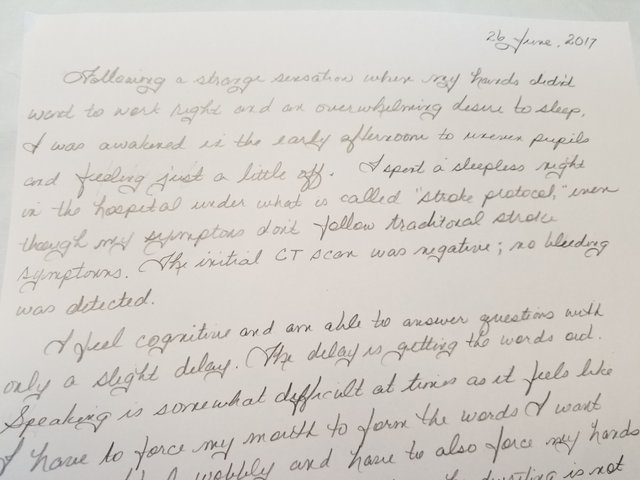 26 June, 2017
Following a strange sensation where my hands didn't
want to work right and an overwhelming desire to sleep,
I was awakened in the early afternoon to uneven pupils
and feeling just a little off. I spent a sleepless night
in the hospital under what is called "stroke protocol," even
though my symptoms don't follow traditional stroke
symptoms. The initial CT scan was negative; no bleeding
was detected.
I feel cognitive and am able to answer questions with
only a slight delay. The delay is getting the words out.
Speaking is somewhat difficult at times as it feels like
I have to force my mouth to form the words I want
wobbly and have to also force my hands
is not